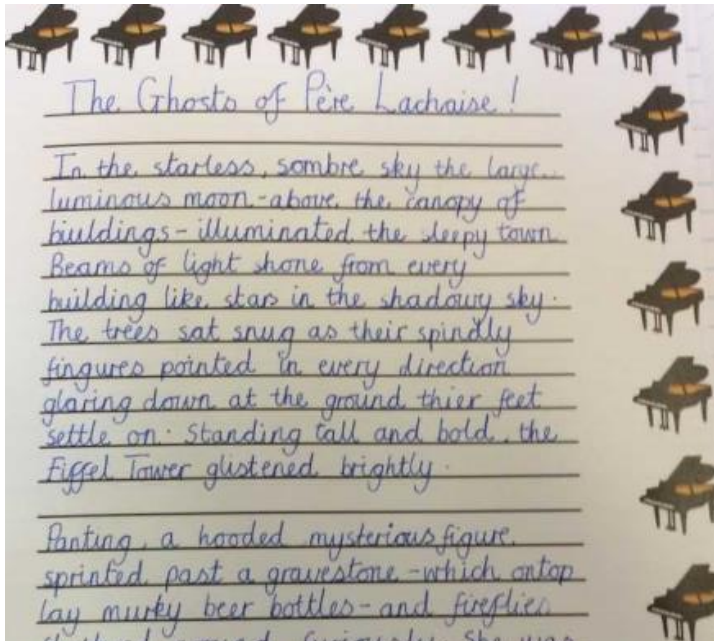 The Ghosts of Père Lachaise!
In the starless, sombre sky the large,
luminous moon-above the canopy of
biuldings-illuminated the sleepy town.
Beams of light shone from every
building like stars in the shadowy sky.
The trees sat snug as their spindly
fingures pointed in every direction
glaring down at the ground thier feet
settle on. Standing tall and bold, the
Eiffel Tower glistened brightly.
Panting, a hooded mysterious figure,
sprinted past a gravestone-which ontop
lay murky beer bottles-and fireflies
around curiously. She was